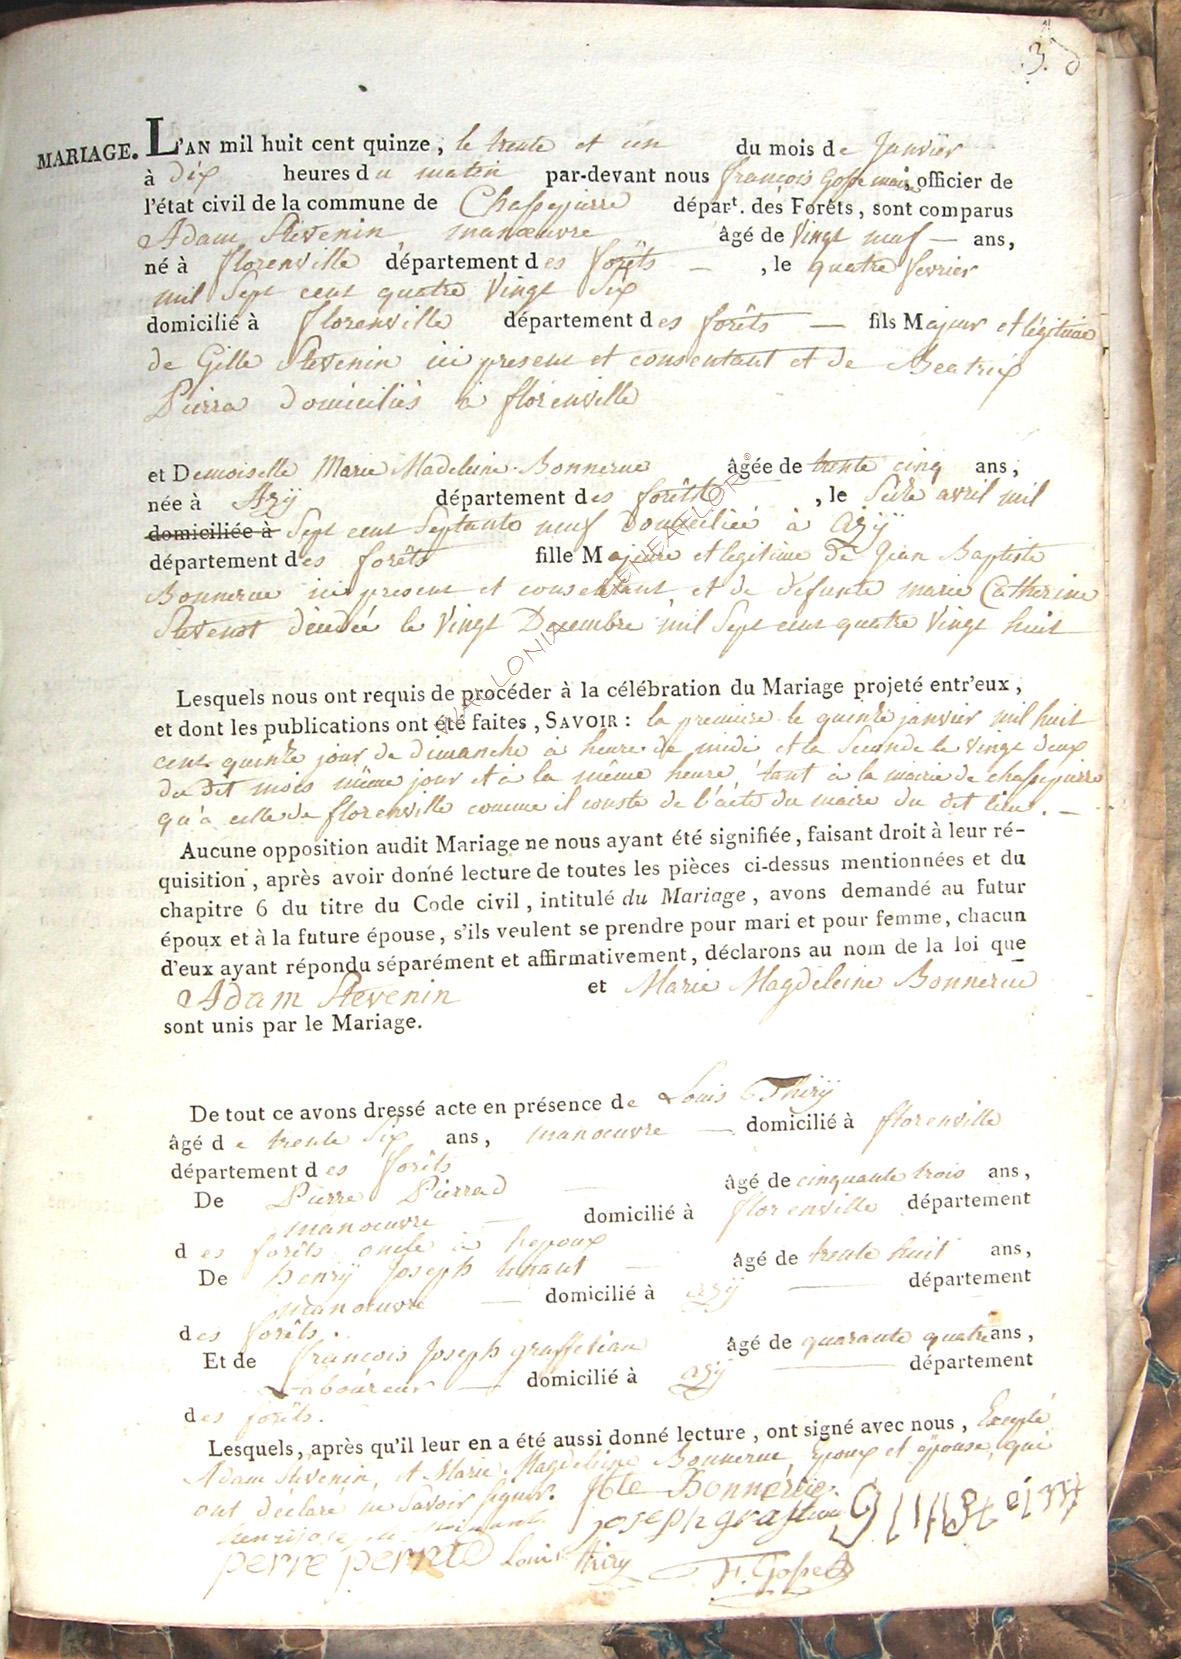 3.
MARIAGE. L'AN mil huit cent quinze, le trente et un du mois de Janvier
à dix heures du matin par-devant nous françois Gosse maire officier de
l'état civil de la commune de Chassepierre départ. des Forêts, sont comparus
Adam Stevenin manœuvre âgé de Vingt neuf — ans,
né à florenville département des forêts — , le quatre fevrier
mil Sept cent quatre Vingt Six
domicilié à florenville département des forêts — fils Majeur et légitime
de Gille Stevenin ici present et consentant et de Beatrix
Pierra domiciliés à florenville
et Demoiselle Marie Madeleine Bonnerue âgée de trente cinq ans,
née à Azÿ département des forêts , le Seize avril mil
domiciliée à Sept cent Septante neuf Domiciliée à azÿ
département des forêts fille Majeure et legitime de Jean Baptiste
Bonnerue ici present et consentant et de défunte marie Catherine
Stevenot décédée le Vingt Decembre mil Sept cent quatre Vingt huit
Lesquels nous ont requis de procéder à la célébration du Mariage projeté entr'eux,
et dont les publications ont été faites, SAVOIR : la premiere le quinze janvier mil huit
cent quinze jour de dimanche à heure de midi et la Seconde le vingt deux
du dit mois même jour et à la même heure, tant à la mairie de chassepierre
qu'à celle de florenville comme il conste de l'acte du maire du dit lieu. —
Aucune opposition audit Mariage ne nous ayant été signifiée, faisant droit à leur ré-
quisition, après avoir donné lecture de toutes les pièces ci-dessus mentionnées et du
chapitre 6 du titre du Code civil, intitulé du Mariage, avons demandé au futur
époux et à la future épouse, s'ils veulent se prendre pour mari et pour femme, chacun
d'eux ayant répondu séparément et affirmativement, déclarons au nom de la loi que
Adam Stevenin et Marie Magdeleine Bonnerue
sont unis par le Mariage.
De tout ce avons dressé acte en présence de Louis Thirÿ
âgé de trente Six ans, manœuvre — domicilié à florenville
département des forêts
De Pierre Pierrad — âgé de cinquante trois ans,
manœuvre — domicilié à florenville département
des forêts oncle à l'epoux
De henrÿ Joseph — âgé de trente huit ans,
manœuvre — domicilié à azÿ — département
des forêts.
Et de françois Joseph graffetiau âgé de quarante quatre ans,
Laboureur — domicilié à azÿ — département
des forêts.
Lesquels, après qu'il leur en a été aussi donné lecture, ont signé avec nous, Excepté
Adam Stevenin, et Marie Magdeleine Bonnerue, Epoux et épouse, qui
ont déclaré ne Savoir Signer. Bonnerue
joseph
Louis thiry F. Gosse